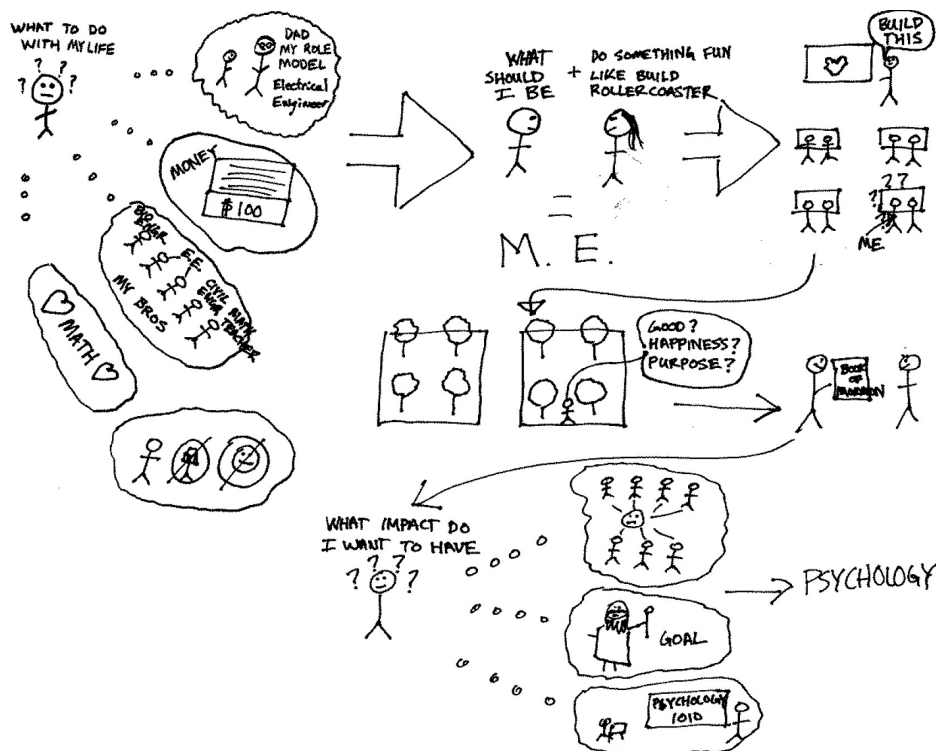 WHAT TO DO
WITH MY LIFE
? ? ? ?
DAD
MY ROLE
MODEL
Electrical
Engineer
MONEY
$100
BIO
ENGR
E.E.
CIVIL
ENGR
MATH
TEACHER
MY BROS
MATH
WHAT
SHOULD
I BE
+
DO SOMETHING FUN
LIKE BUILD
ROLLERCOASTER
=
M. E.
BUILD
THIS
? ? ?
ME
GOOD?
HAPPINESS?
PURPOSE?
BOOK
OF
MORMON
WHAT IMPACT DO
I WANT TO HAVE
? ? ? ?
GOAL
PSYCHOLOGY
1010
PSYCHOLOGY